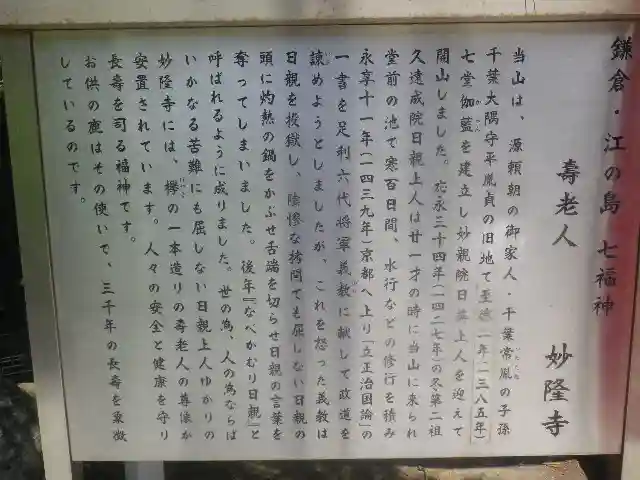 鎌倉・江の島 七福神
壽老人　妙隆寺
当山は、源頼朝の御家人・千葉常胤の子孫
千葉大隅守平胤貞の旧地で至徳二年(一三八五年)
七堂伽藍を建立し妙親院日英上人を迎えて
開山しました。応永三十四年(一四二七年)の冬第二祖
久遠成院日親上人は廿一才の時に当山に来られ
堂前の池で寒百日間、水行などの修行を積み
永享十一年(一四三九年)京都へ上り「立正治国論」の
一書を足利六代将軍義教に献して政道を
諫めようとしましたが、これを怒った義教は
日親を投獄し、陰惨な拷問ても屈しない日親の
頭に灼熱の鍋をかぶせ舌端を切らせ日親の言葉を
奪ってしまいました。後年『なべかむり日親』と
呼ばれるように成りました。世の為、人の為ならば
いかなる苦難にも屈しない日親上人ゆかりの
妙隆寺には、欅の一本造りの寿老人の尊像が
安置されています。人々の安全と健康を守り
長寿を司る福神です。
お供の鹿はその使いで、三千年の長寿を象徴
しているのです。